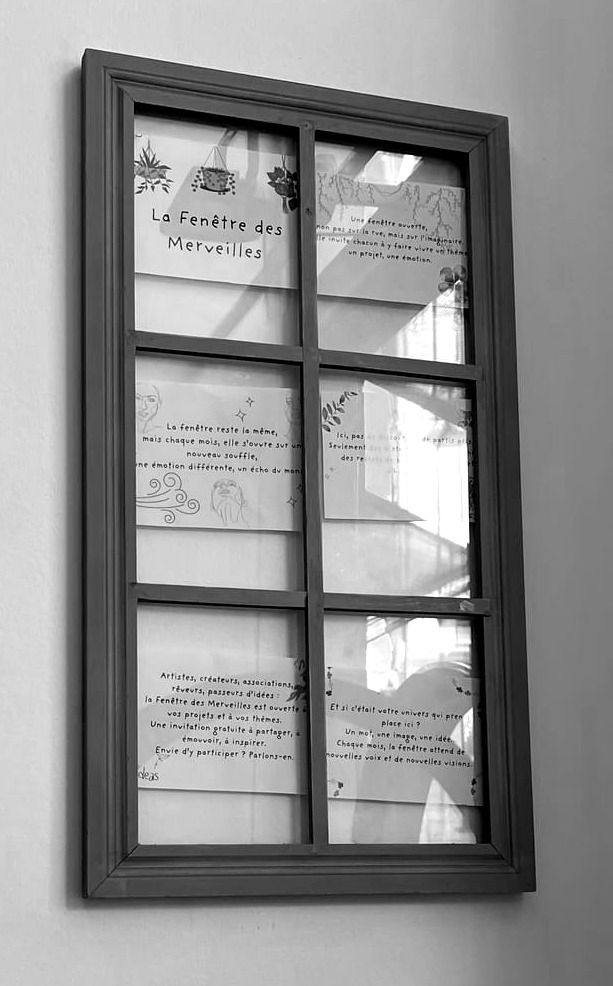 La Fenêtre des
Merveilles
Une fenêtre ouverte,
non pas sur la rue, mais sur l'imaginaire.
elle invite chacun à y faire vivre un thème
un projet, une émotion.
La fenêtre reste la même,
mais chaque mois, elle s'ouvre sur un
nouveau souffle,
une émotion différente, un écho du mon
Ici, pas de discours, de partis pris
Seulement
des re
Artistes, créateurs, associations,
rêveurs, passeurs d'idées :
la Fenêtre des Merveilles est ouverte à
vos projets et à vos thèmes.
Une invitation gratuite à partager, à
émouvoir, à inspirer.
Envie d'y participer ? Parlons-en.
deas
Et si c'était votre univers qui pren
place ici ?
Un mot, une image, une idée.
Chaque mois, la fenêtre attend de
nouvelles voix et de nouvelles visions.